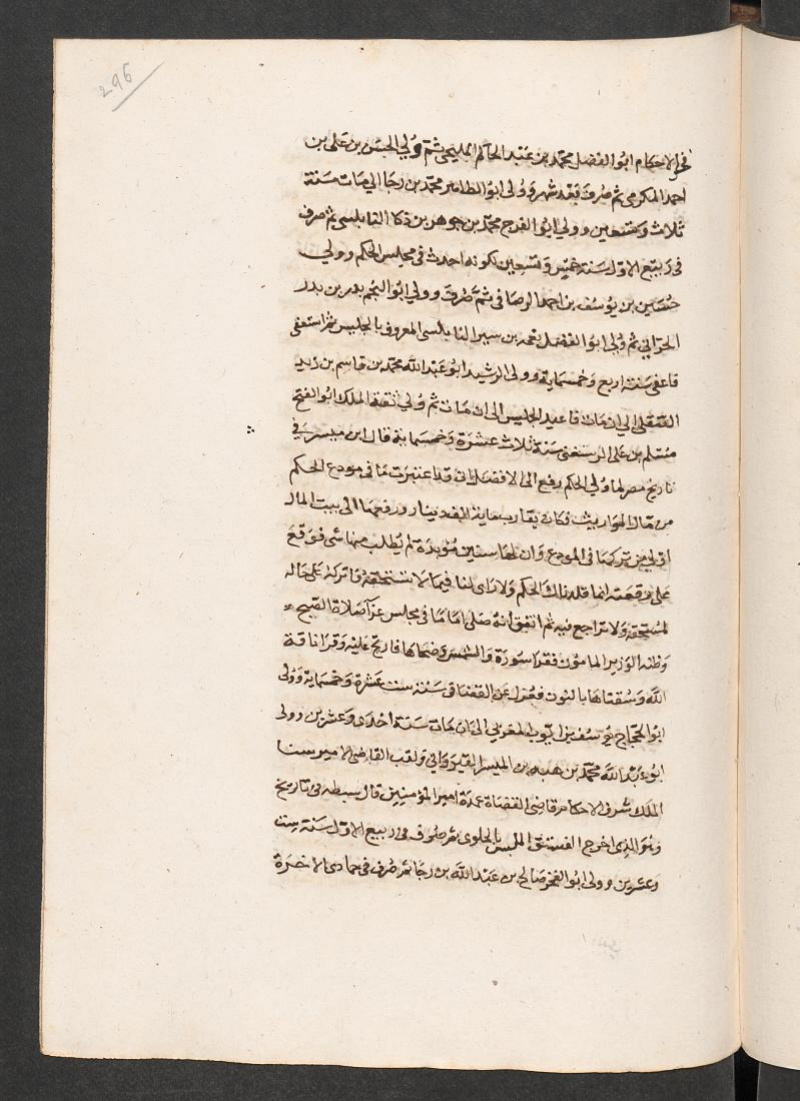 296
فخر الاحكام ابو الفضل محمد بن عبد الحاكم المليجى ثم ولي الحسن بن على بن
احمد المكرمى ثم صرف بعد شهر وولى ابو الطاهر محمد بن رجا الى مات سنة
ثلاث وتسعين وولي ابو الفرج محمد بن جوهر بن ذكا النابلسى ثم صرف
فى ربيع الاول سنة خمس وتسعين لكونه احدث فى مجلس الحكم وولي
حسين بن يوسف بن احمد الرصافى ثم صرف وولي ابو النجم بدر بن بدر
الحراني ثم ولي ابو الفضل نعمه بن سير النابلسى المعروف بالجليس ثم استعفى
فاعفى سنة اربع وخمسماية وولى الرشيد ابو عبد الله محمد بن قاسم بن زيد
الصقلى الي ان مات فاعيد الجليس الى ان مات ثم ولي ثقة الملك ابو الفتح
مسلم بن على الرسعنى سنة ثلاث عشرة وخمسماية قال ابن ميسر في
تاريخ مصر لما ولي الحكم رفع الى الافضل انى قد اعتبرت ما فى مودع الحكم
من مال المواريث فكان يقارب ماية الف دينار ورفعها الى بيت المال
اولى من تركها فى المودع وان لها سنين مؤبدة لم يطلب منها شى فوقع
على رقعته انما قلدناك الحكم ولا راى لنا فيما لا نستحقه فاتركه على حاله
لمستحقه ولا تراجع فيه ثم اتفق انه صلى اماما فى مجلس عزآ صلاة الصبح
وظنه الوزير المامون فقرا سورة والشمس وضحاها فارتج عليه وقرا ناقة
الله وسقناها بالنون فعزل عن القضا فى سنة ست عشرة وخمسماية وولى
ابو الحجاج يوسف بن ايوب المغربي الى ان مات سنة احدى وعشرين وولى
ابو عبد الله محمد بن هبه بن الميسر القيرواني ولقب القاضى الامير سنا
الملك شرف الاحكام قاضى القضاة عمدة امير المؤمنين قال سبطه فى تاريخ
وهو الذى اخرج الفستق الملبس بالحلوى ثم صرف فى ربيع الاول سنة ست
وعشرين وولى ابو الفخر صالح بن عبد الله بن رجا ثم صرف فى جمادى الاخرة